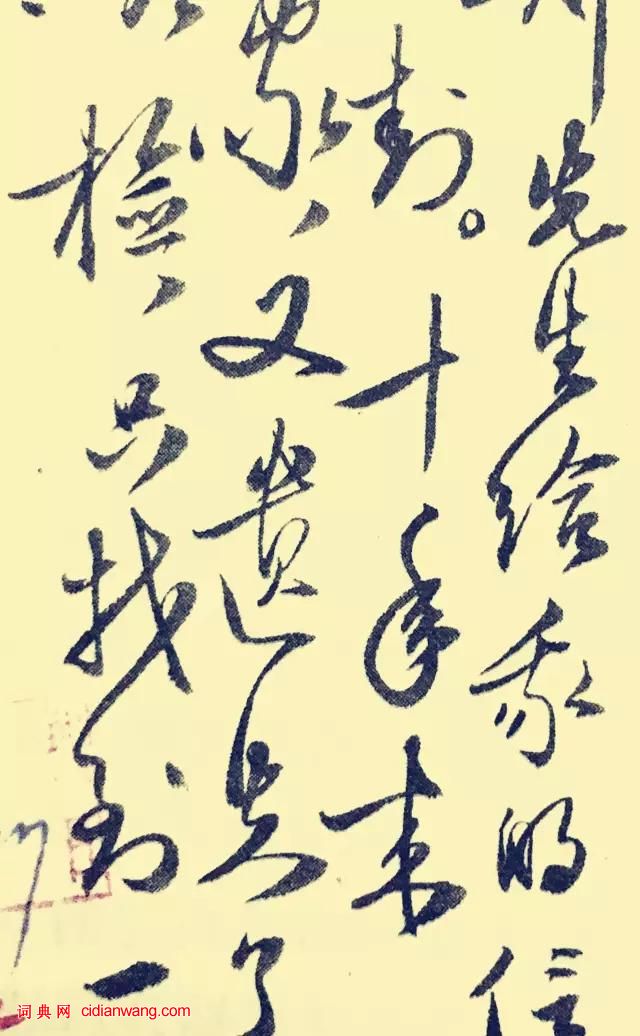 先生给我的信
封。十年来
家，又遗失了
检，只找到一
词典网 cidianwang.com